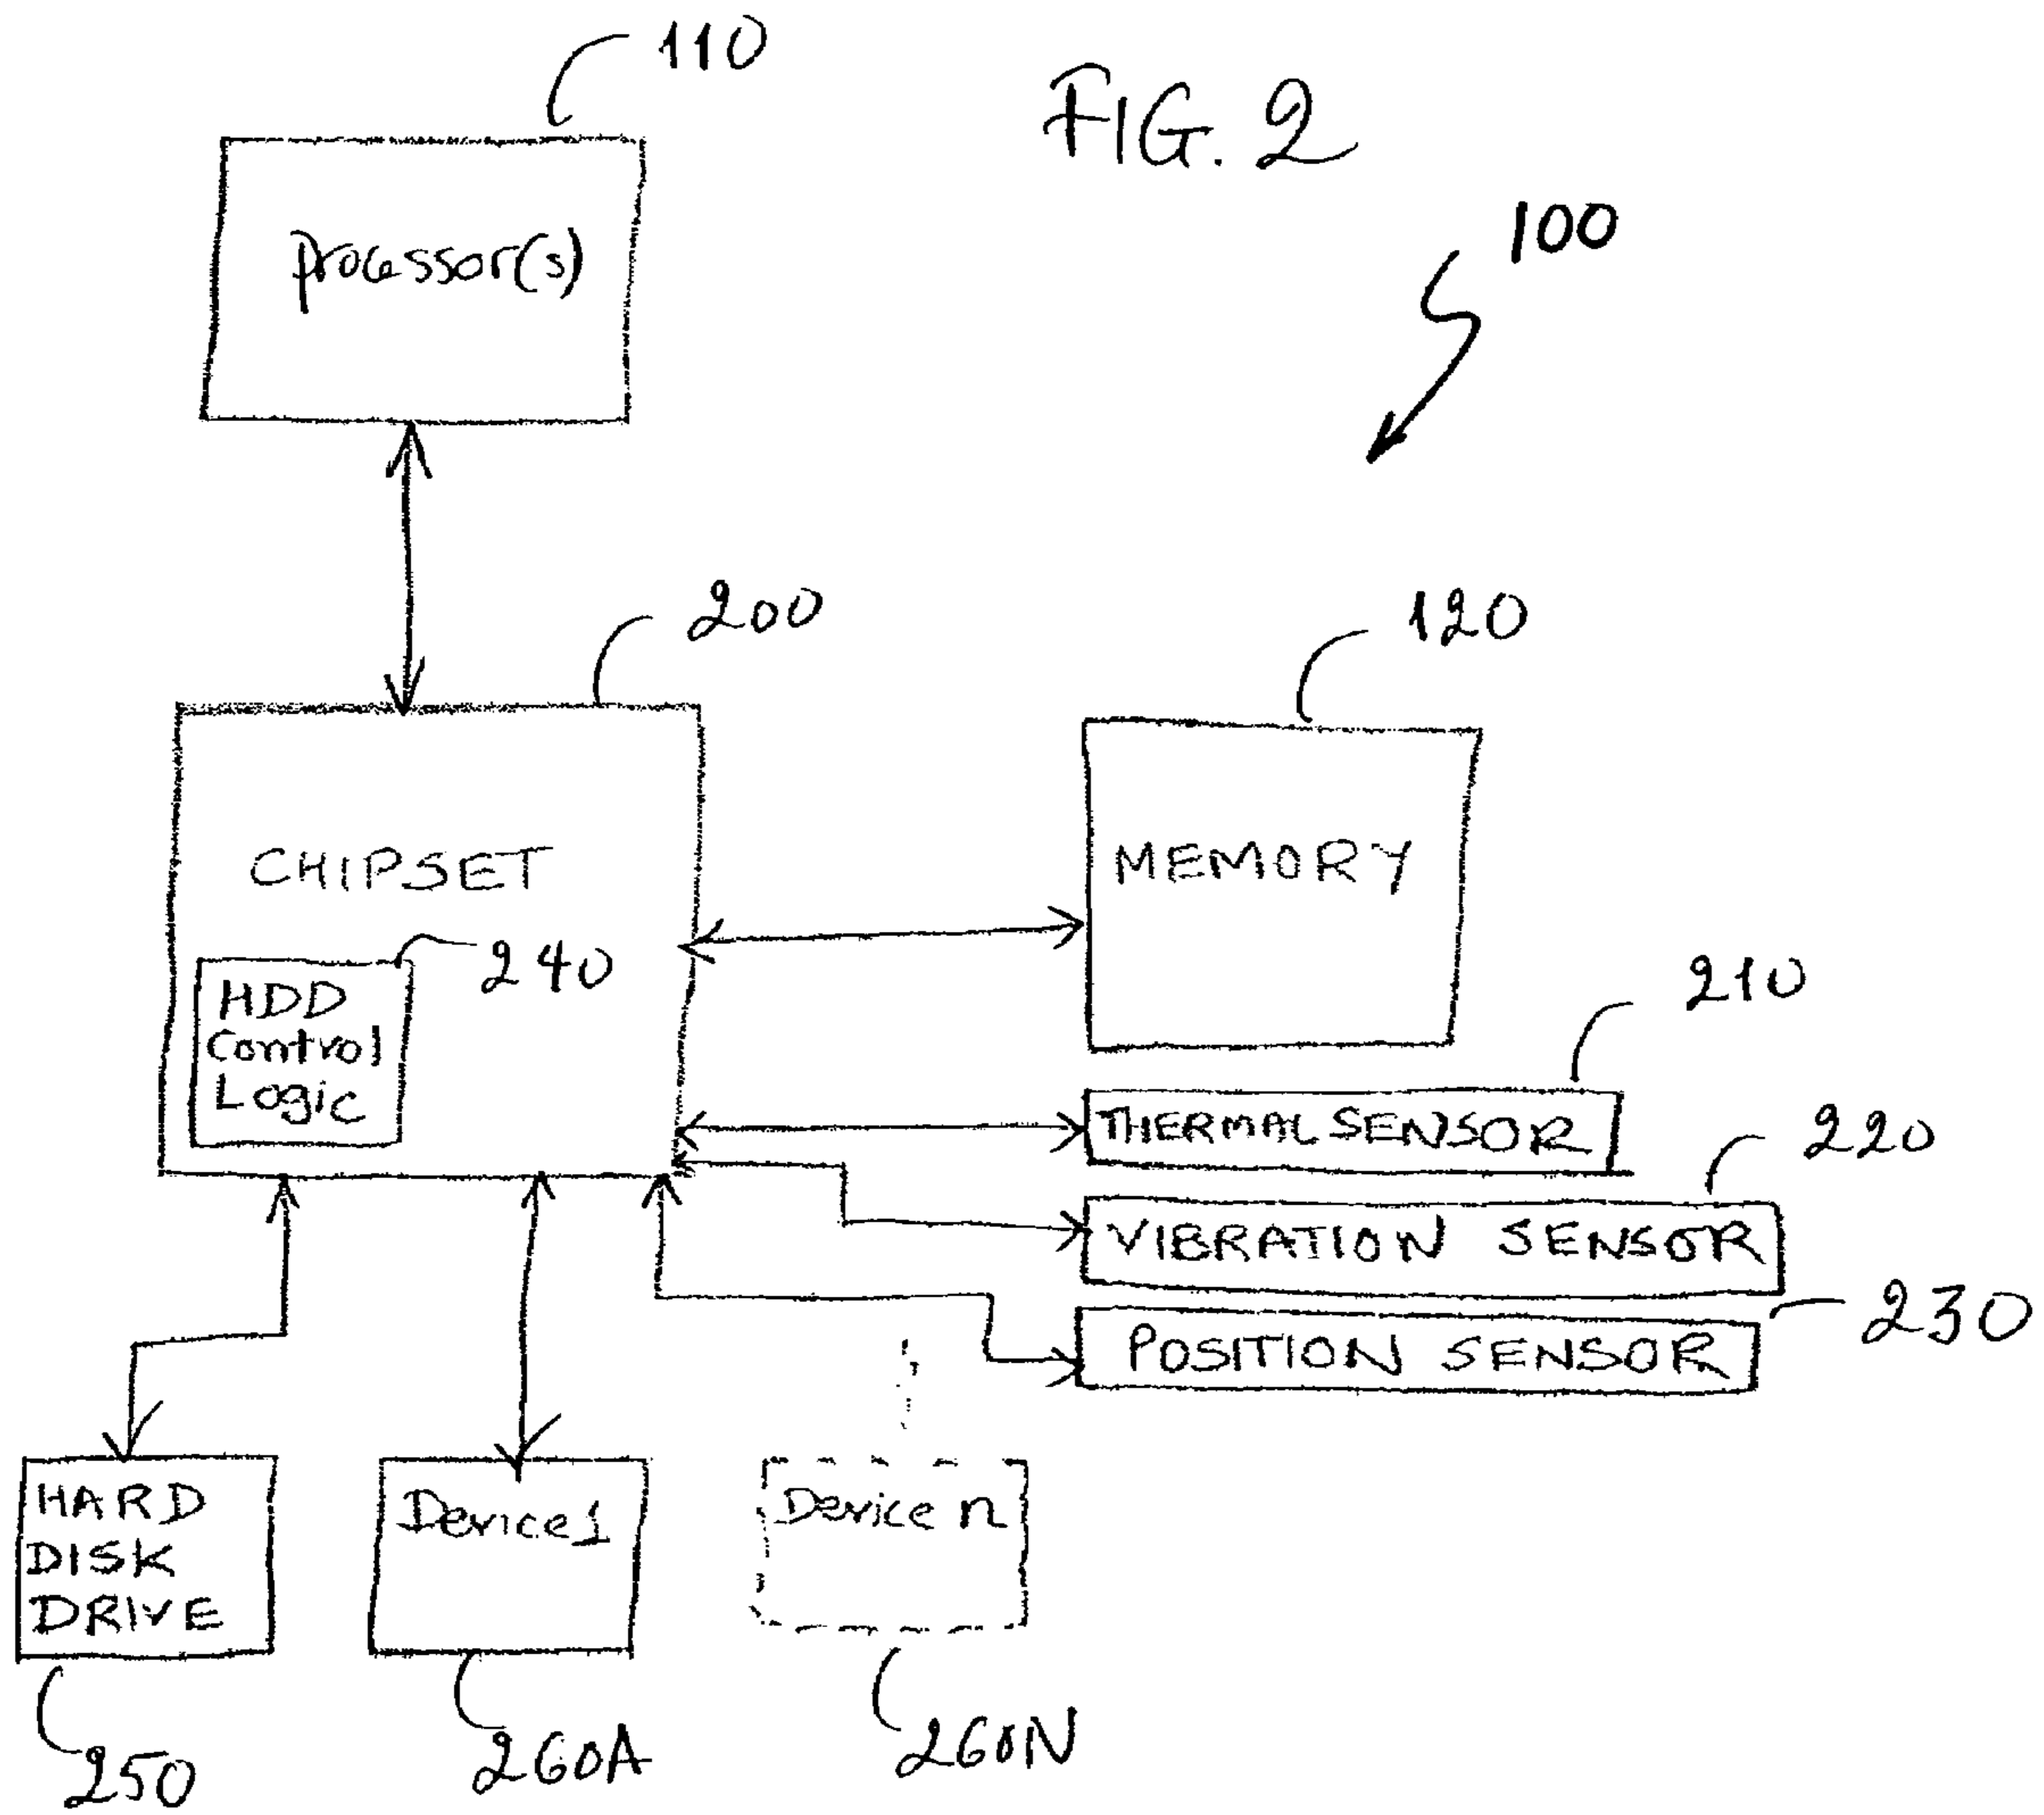 110
FIG. 2
100
processor(s)
200
120
CHIPSET
MEMORY
240
HDD
Control
Logic
210
THERMAL SENSOR
220
VIBRATION SENSOR
230
POSITION SENSOR
HARD
DISK
DRIVE
Device 1
Device n
250
260A
260N